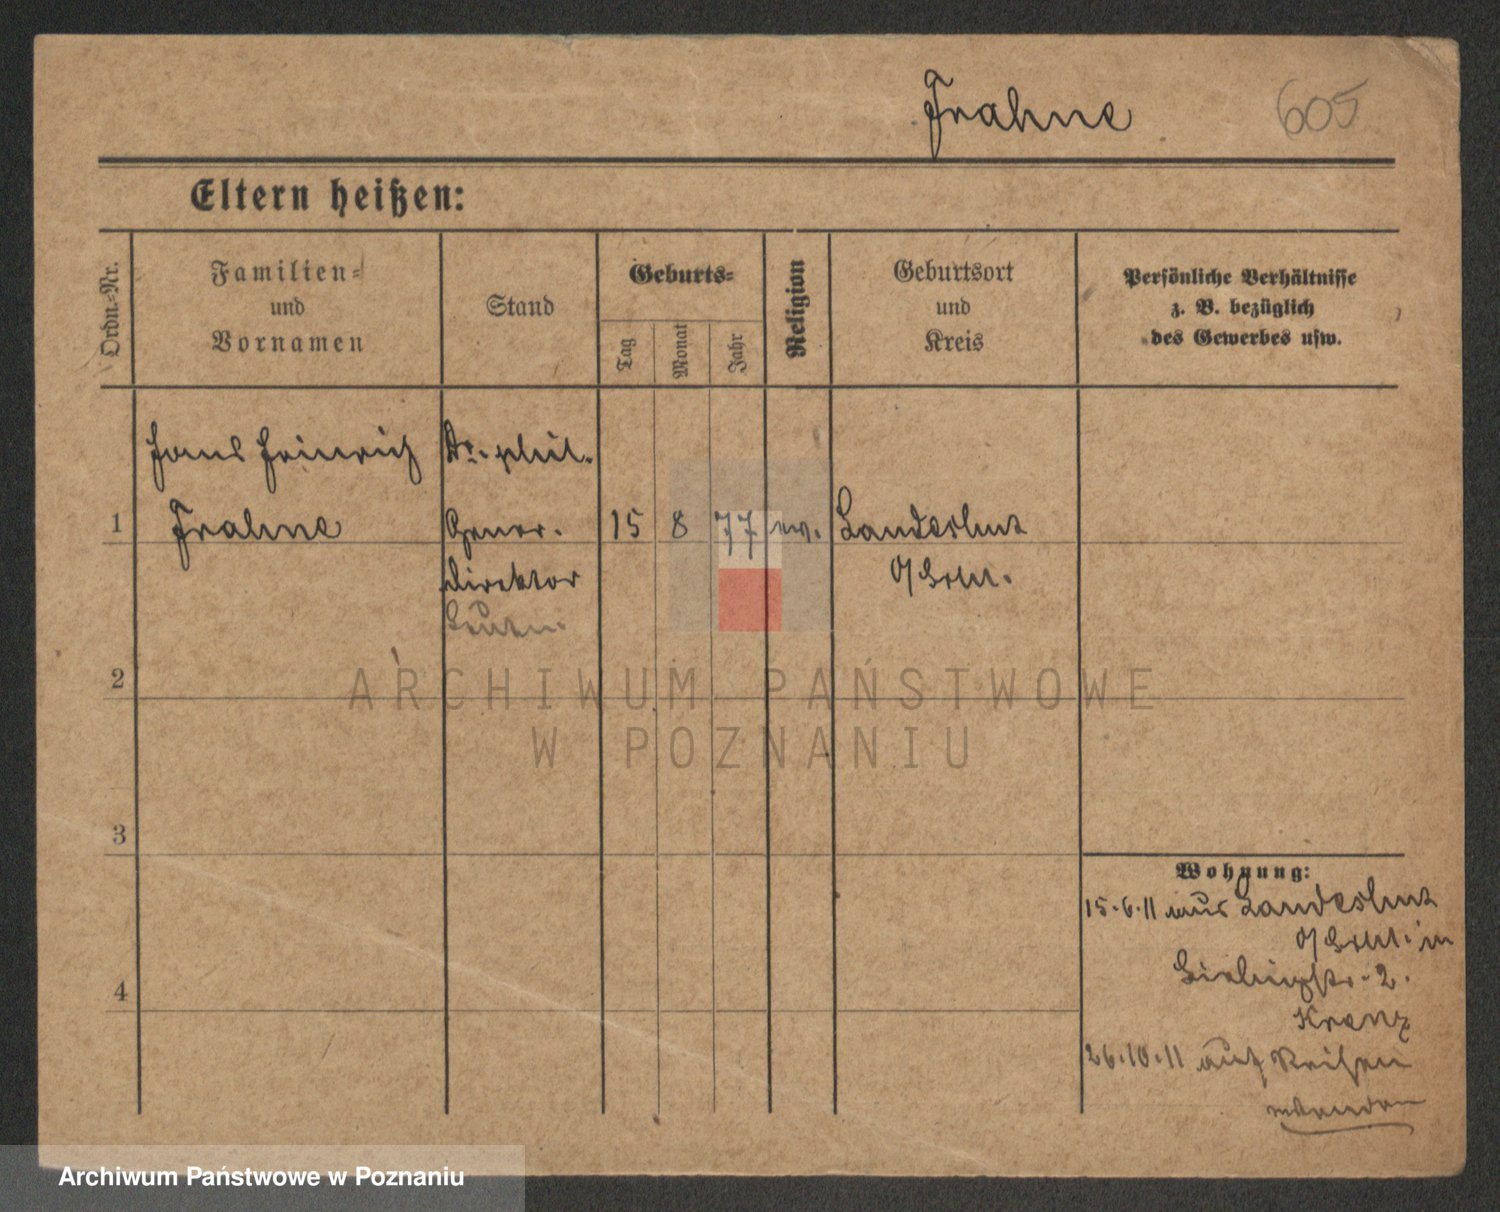 Frahne 605
Eltern heißen:
Ordn.-Nr.
Familien-
und
Vornamen
Stand
Geburts-
Tag
Monat
Jahr
Religion
Geburtsort
und
Kreis
Persönliche Verhältnisse
z. B. bezüglich
des Gewerbes usw.
Hans Heinrich Dr. phil.
1 Frahne Gener. 15 8 77 ev. Landeshut
direktor
2
3
4
Wohnung:
15.6.11 aus Landeshut
in
2.
Kranz
26.10.11 auf Reisen
ARCHIWUM PAŃSTWOWE
W POZNANIU
Archiwum Państwowe w Poznaniu